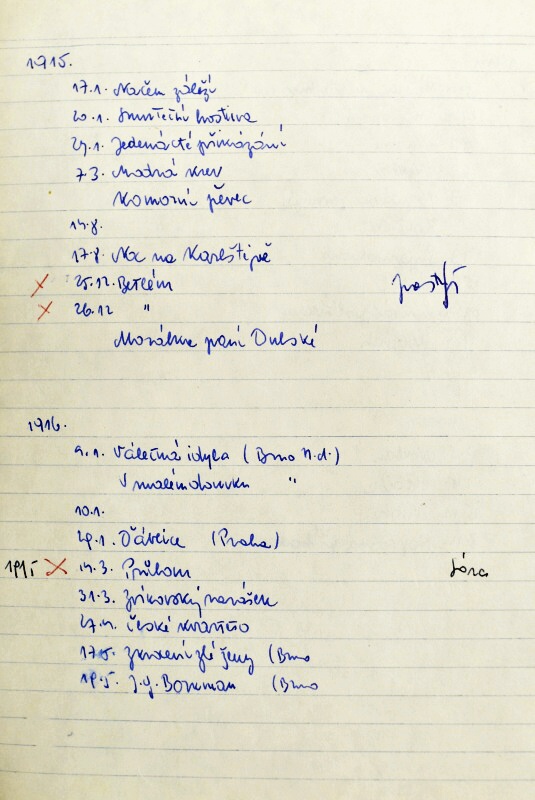 1915.
17.1. Načem záleží
20.1. Smuteční hostina
29.1. Jedenácté přikázání
7.3. Modrá krev
Komorní pěvec
14.8.
17.8. Noc na Karlštejně
X 25.12. Betlém pastýř
X 26.12 "
Morálka paní Dulské
1916.
9.1. Válečná idyla (Brno N.d.)
V malém domku "
10.1.
29.1. Očá (Praha)
1915 X 14.3. Průlom Jóra
31.3. Zvíkovský rarášek
27.4. České kvarteto
17.5. Zkrocení zlé ženy (Brno
19.5. J.G. Borkman (Brno